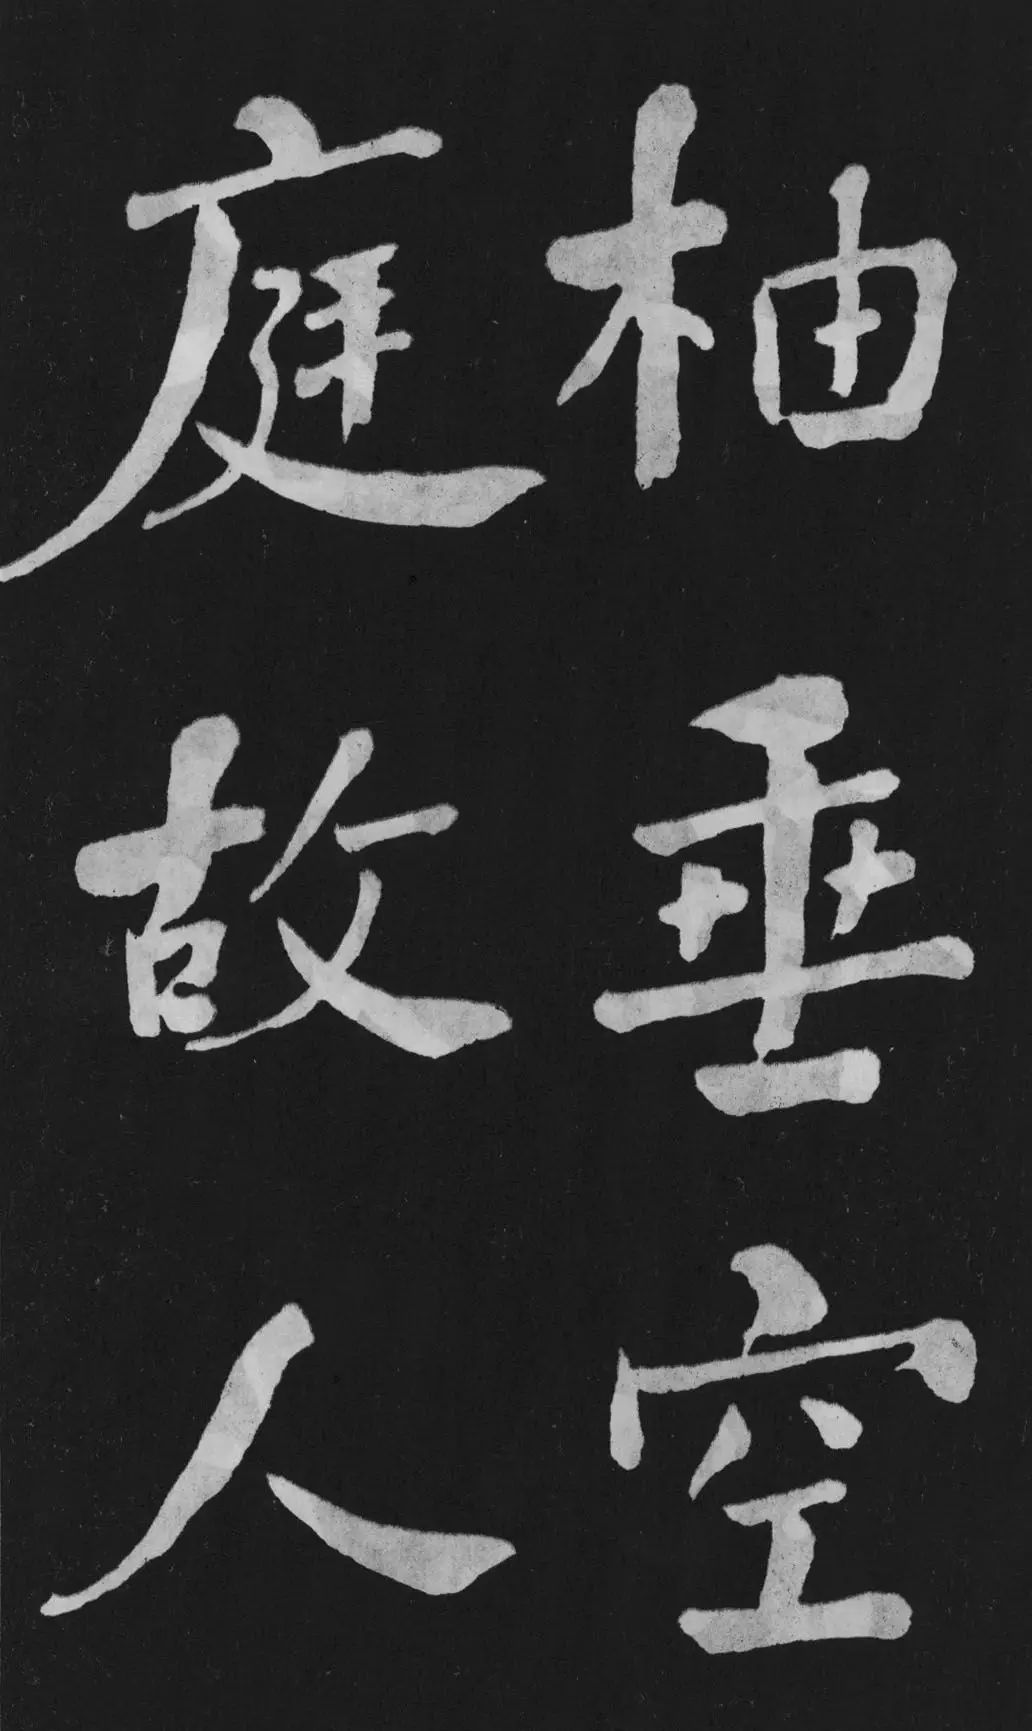 柚垂空
庭故人